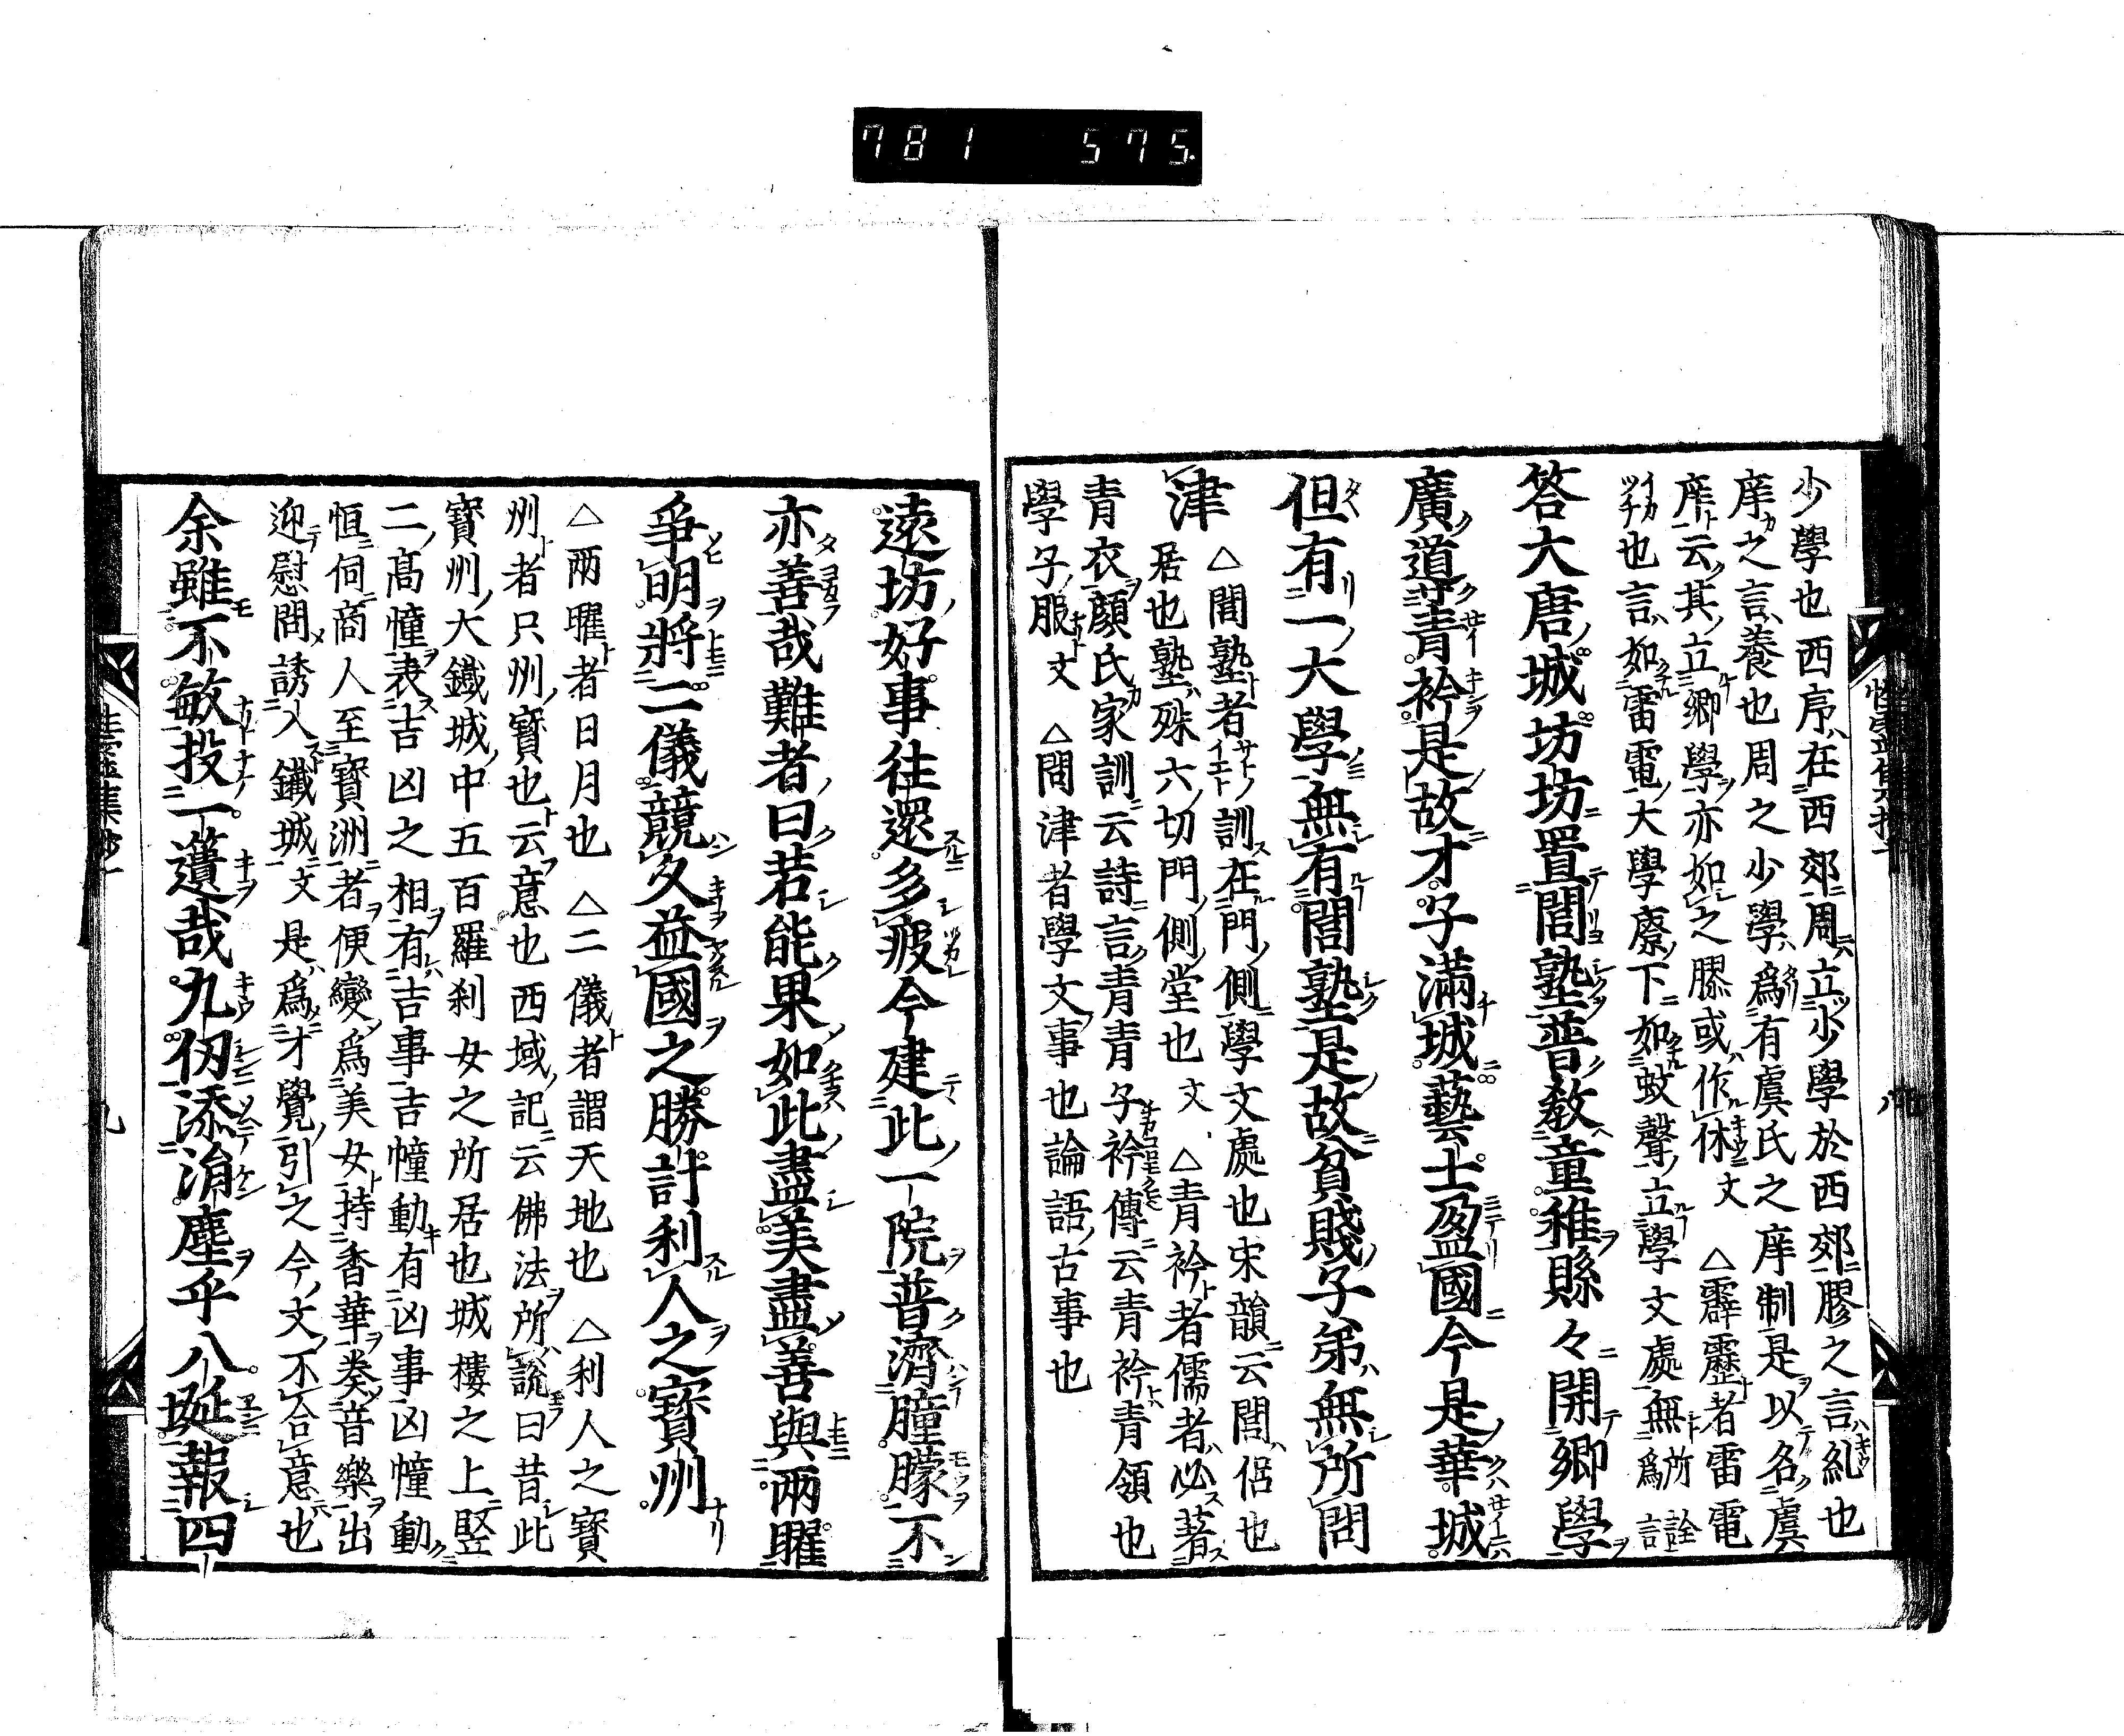 781 575
少學也西序在西郊周立少學於西郊膠之言糺也
庠之言養也周之少學爲有虞氏之庠制是以名虞
庠云其立卿學亦如之膠或作休文 △霹靂者雷電
也言如雷電大學尞下如蚊聲立學文處無所詮爲言
答大唐城坊坊置閭塾普教童稚縣々開卿學
廣導青衿是故才子滿城藝士盈國今是華城
但有一大學無有閭塾是故貧賤子弟無所問
津 △閭塾者訓在門側學文處也宋韻云閭侶也
居也塾殊六切門側堂也文 △青衿者儒者必著
青衣顔氏家訓云詩言青青子衿傳云青衿青領也
學子服文 △問津者學文事也論語古事也
遠坊好事往還多疲今建此一院普濟朣朦不
亦善哉難者曰若能果如此盡美盡善與兩曜
爭明將二儀競久益國之勝計利人之寶州
△兩曜者日月也 △二儀者謂天地也 △利人之寶
州者只州寶也云意也西域記云佛法所說曰昔此
寶州大鐵城中五百羅刹女之所居也城樓之上竪
二高幢表吉凶之相有吉事吉幢動有凶事凶幢動
恒伺商人至寶洲者便變爲美女持香華奏音樂出
迎慰問誘入鐵城文是爲才覺引之今文不合意也
余雖不敏投一簣哉九仞添涓塵乎八埏報四
九